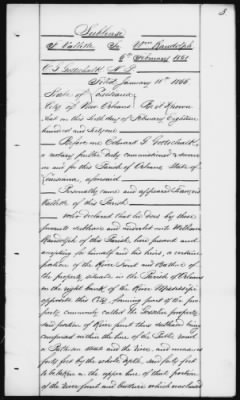 3
Sublease
F. Vallette To Wm Randolph
6th February 1861
E. G. Gottschalk N. P.
Filed January 18th 1866
State of Louisiana
City of New Orleans Be it Known
that on this sixth day of February Eighteen
hundred and sixty one
Before me Edward G Gottschalk,
a notary public duly commissioned & sworn
in and for this Parish of Orleans State of
Louisiana, aforesaid
Personally came and appeared François
Vallette of this Parish
Who declared that he does by these
presents sublease and underlet unto William
Randolph of this Parish, here present and
accepting for himself and his heirs, a certain
portion of the River front and Batture of
the property situate in the Parish of Orleans
on the right bank of the River Mississippi
opposite this City, forming part of the pro-
perty commonly called the property
said portion of River front thus subleased being
comprised within the line of the Public road
a Path and the river, and measures
forty feet by the whole depth, said forty feet
to be taken on the upper line of that portion
of the river front and batture which was leased